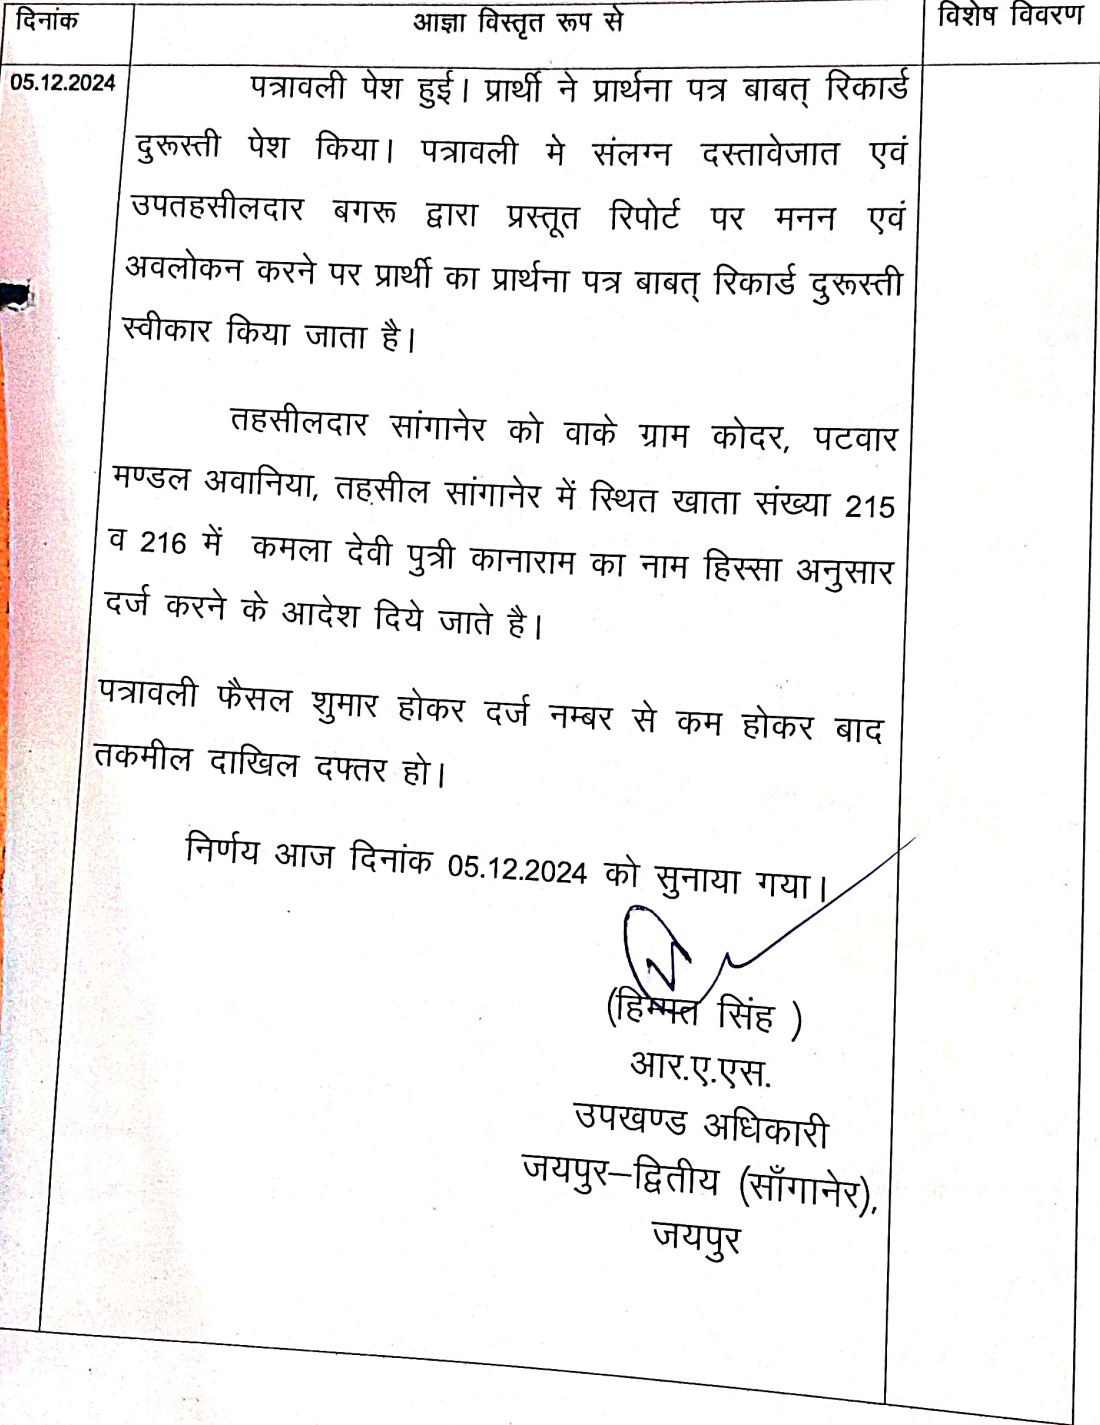 दिनांक आज्ञा विस्तृत रूप से विशेष विवरण
05.12.2024 पत्रावली पेश हुई। प्रार्थी ने प्रार्थना पत्र बाबत् रिकार्ड
दुरूस्ती पेश किया। पत्रावली मे संलग्न दस्तावेजात एवं
उपतहसीलदार बगरू द्वारा प्रस्तूत रिपोर्ट पर मनन एवं
अवलोकन करने पर प्रार्थी का प्रार्थना पत्र बाबत् रिकार्ड दुरूस्ती
स्वीकार किया जाता है।
तहसीलदार सांगानेर को वाके ग्राम कोदर, पटवार
मण्डल अवानिया, तहसील सांगानेर में स्थित खाता संख्या 215
व 216 में कमला देवी पुत्री कानाराम का नाम हिस्सा अनुसार
दर्ज करने के आदेश दिये जाते है।
पत्रावली फैसल शुमार होकर दर्ज नम्बर से कम होकर बाद
तकमील दाखिल दफ्तर हो।
निर्णय आज दिनांक 05.12.2024 को सुनाया गया।
(हिम्मत सिंह )
आर.ए.एस.
उपखण्ड अधिकारी
जयपुर–द्वितीय (साँगानेर),
जयपुर